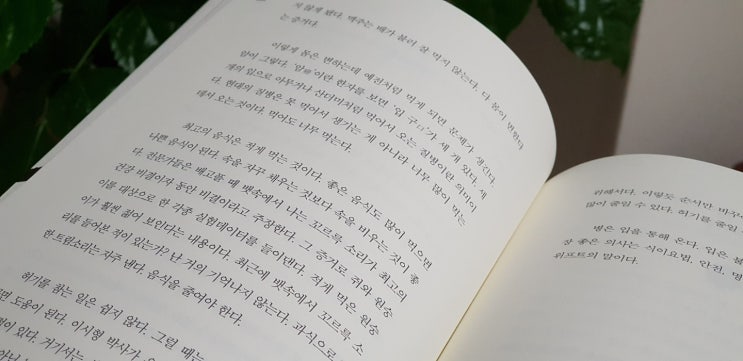 지 않게 된다. 맥주는 배가 불러 잘 먹지 않는다. 다 몸이 변했다
는 증거다.
이렇게 몸은 변하는데 예전처럼 먹게 되면 문제가 생긴다.
암이 그렇다. '암癌'이란 한자를 보면 '입 구口'가 세 개 있다. 세
개의 입으로 아무거나 산더미처럼 먹어서 오는 질병이란 의미이
다. 현대의 질병은 못 먹어서 생기는 게 아니라 너무 많이 먹는
데서 오는 것이다. 먹어도 너무 먹는다.
최고의 음식은 적게 먹는 것이다. 좋은 음식도 많이 먹으면
나쁜 음식이 된다. 속을 자꾸 채우는 것보다 속을 비우는 것이 좋
다. 전문가들은 배고플 때 뱃속에서 나는 꼬르륵 소리가 최고의
건강 비결이자 동안 비결이라고 주장한다. 그 증거로 쥐와 원숭
이를 대상으로 한 각종 실험데이터를 들이댄다. 적게 먹은 원숭
이가 훨씬 젊어 보인다는 내용이다. 최근에 뱃속에서 꼬르륵 소
리를 들어본 적이 있는가? 난 거의 기억나지 않는다. 과식으로
한 트림소리는 자주 낸다. 음식을 줄여야 한다.
허기를 참는 일은 쉽지 않다. 그럴 때는
면 도움이 된다. 이시형 박사가
있다. 거기서는
위해서다. 이렇듯 순서만 바꾸
많이 줄일 수 있다. 허기를 줄일
병은 입을 통해 온다. 입은
장 좋은 의사는 식이요법, 안전, 명
위프트의 말이다.